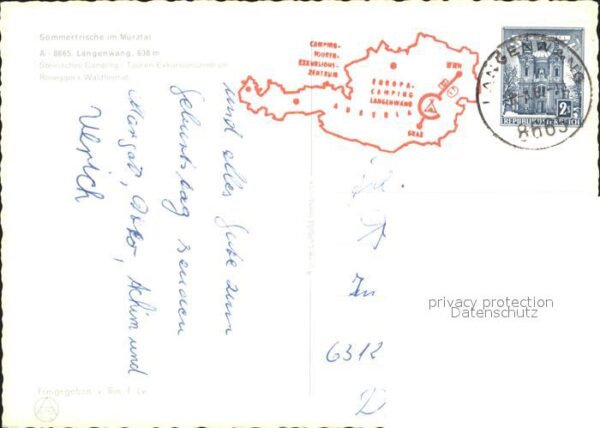 Sommerfrische im Mürztal
A - 8665 Langenwang, 638 m
Steirisches Camping - Touren-Exkursionszentrum
Roseggers Waldheimat
CAMPING-
TOUREN-
EXKURSIONS-
ZENTRUM
WIEN
EUROPA-
CAMPING
LANGENWANG
AUSTRIA
GRAZ
LANGENWANG
8665
2S
REPUBLIK ÖSTERREICH
und alles Gute zum
Geburtstag senden
Margot, Achim und
Ulrich
6312
D
privacy protection
Datenschutz
Freigegeben v.